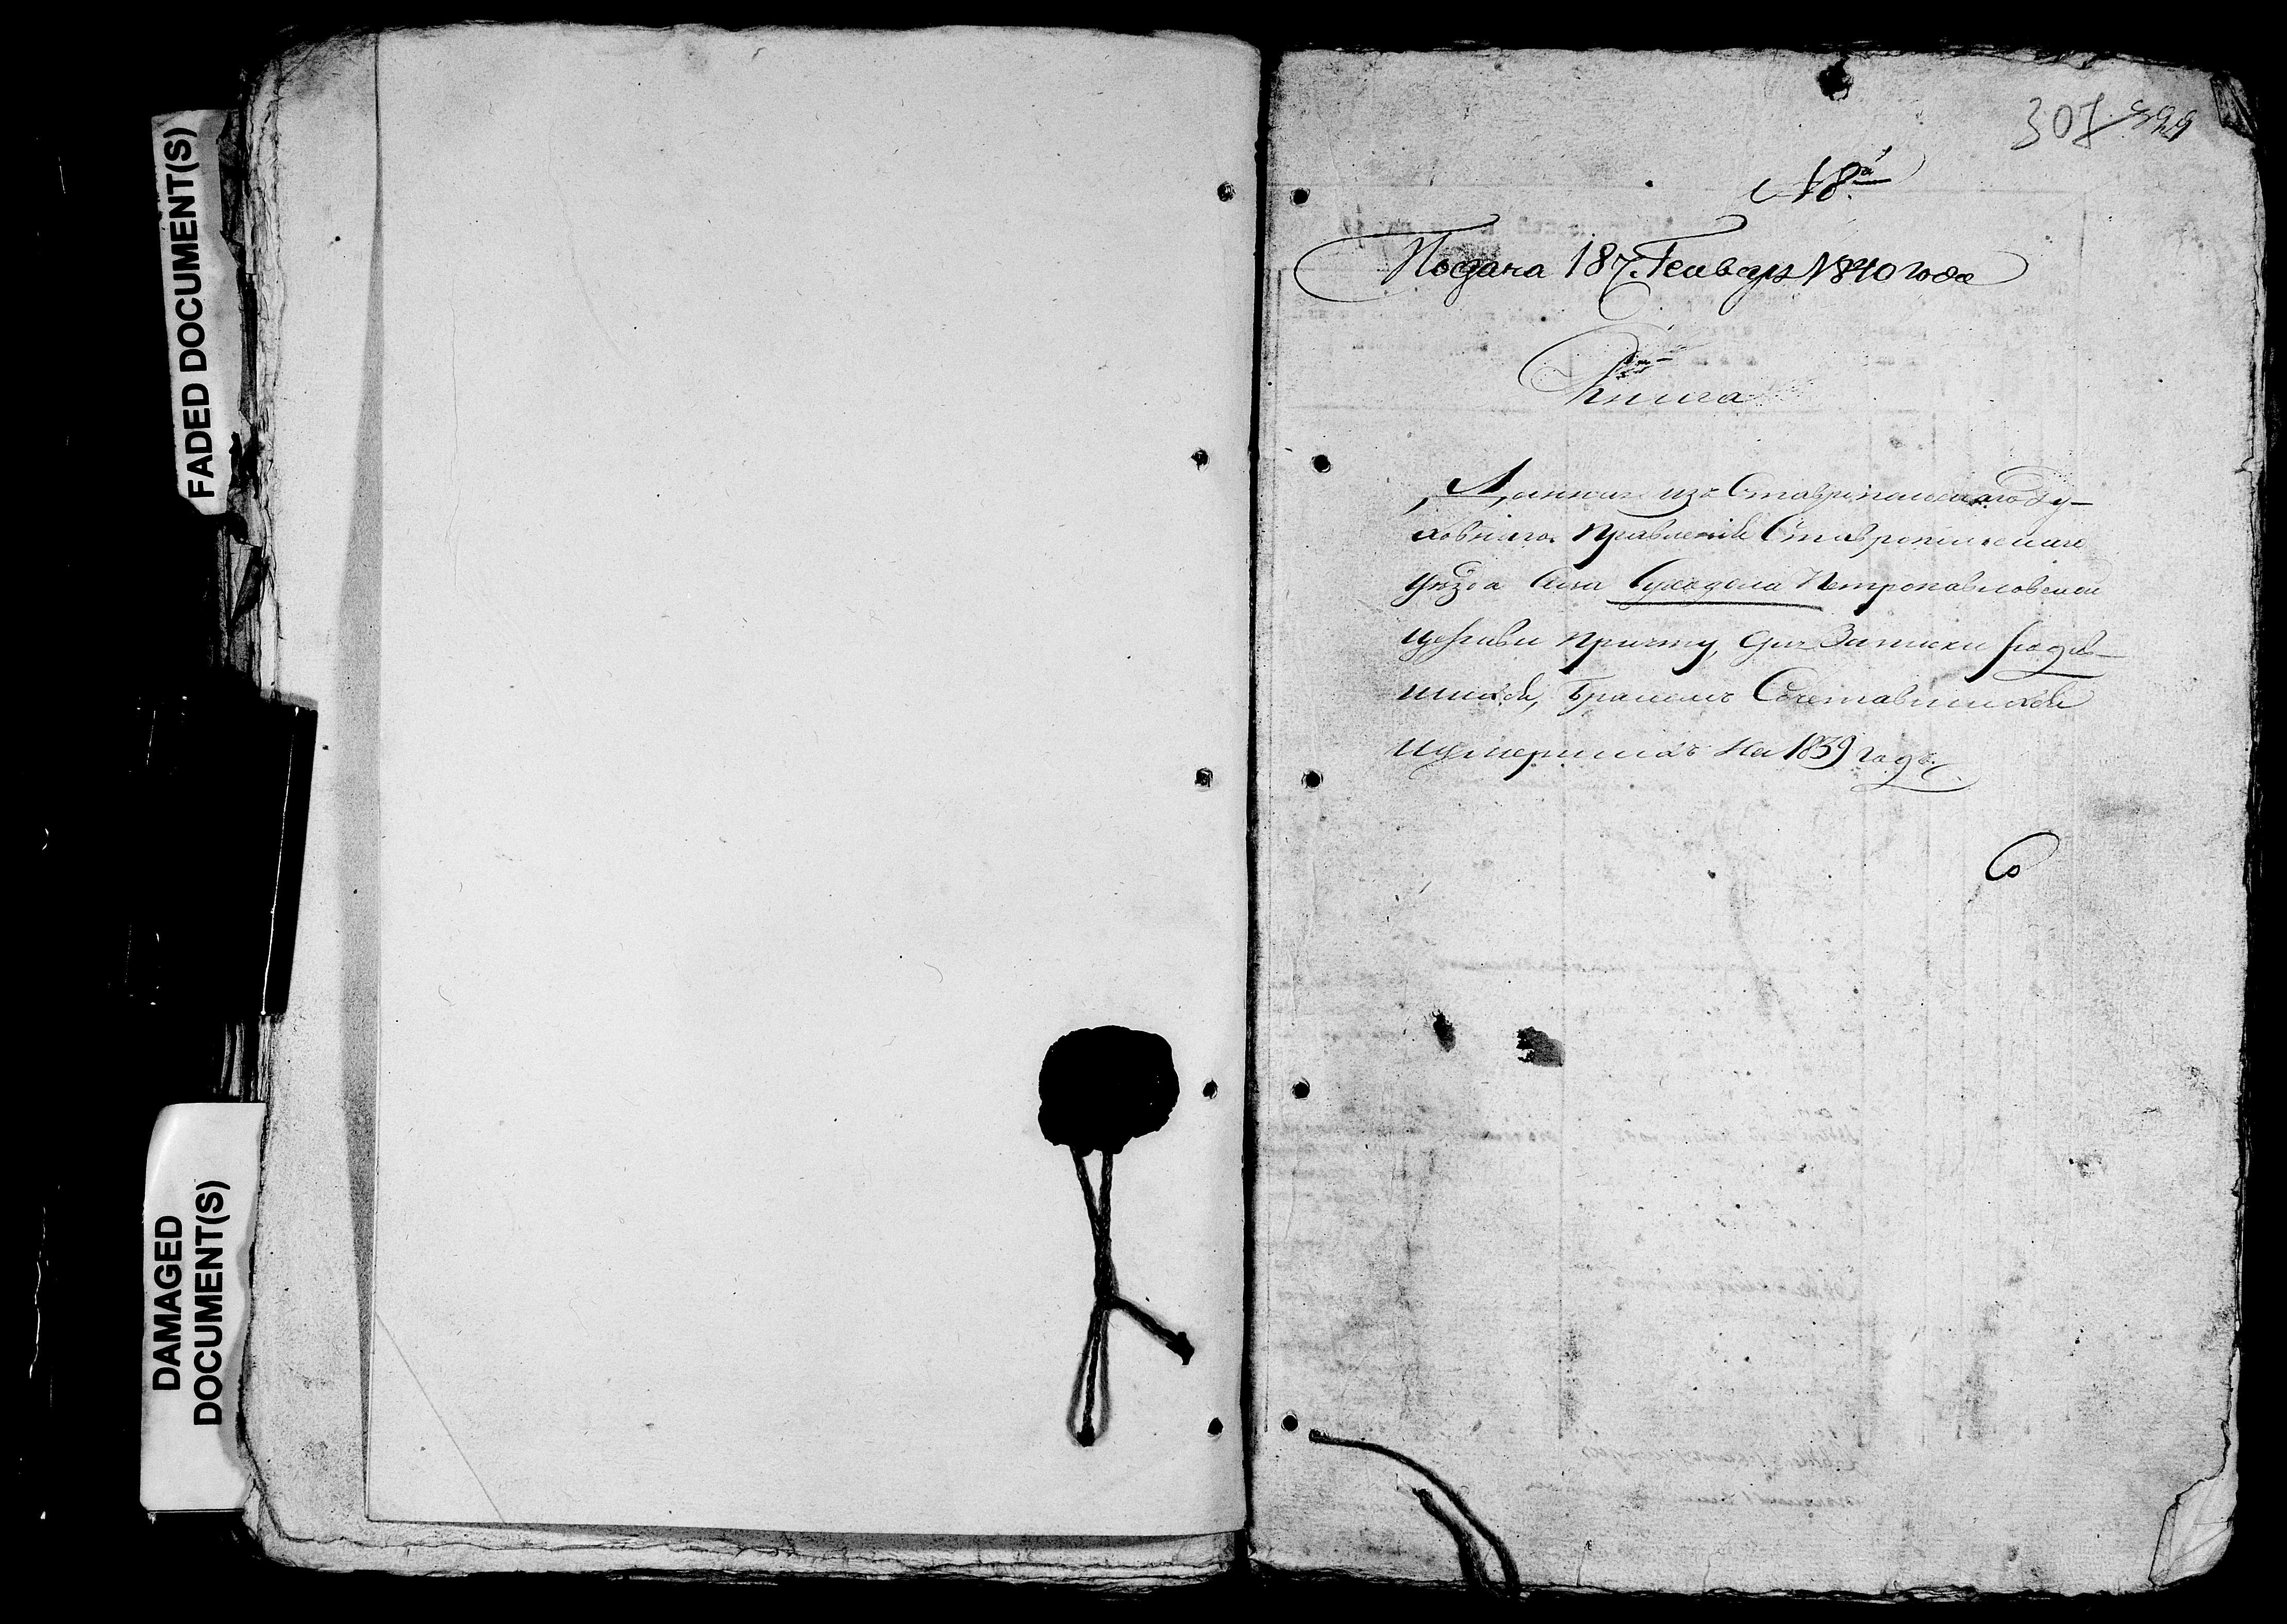 FADED DOCUMENT(S)
DAMAGED
DOCUMENT(S)
307
18ᵃ
Подана 18 Генваря 1840 года
Книга
Данная изъ Ставропольскаго Ду-
ховнаго Правленія Ставропольскаго
уѣзда Села Суходола Петропавловской
церкви Причту, для Записки родив-
шихся, бракомъ Сочетавшихся
и умершихъ на 1839 годъ.